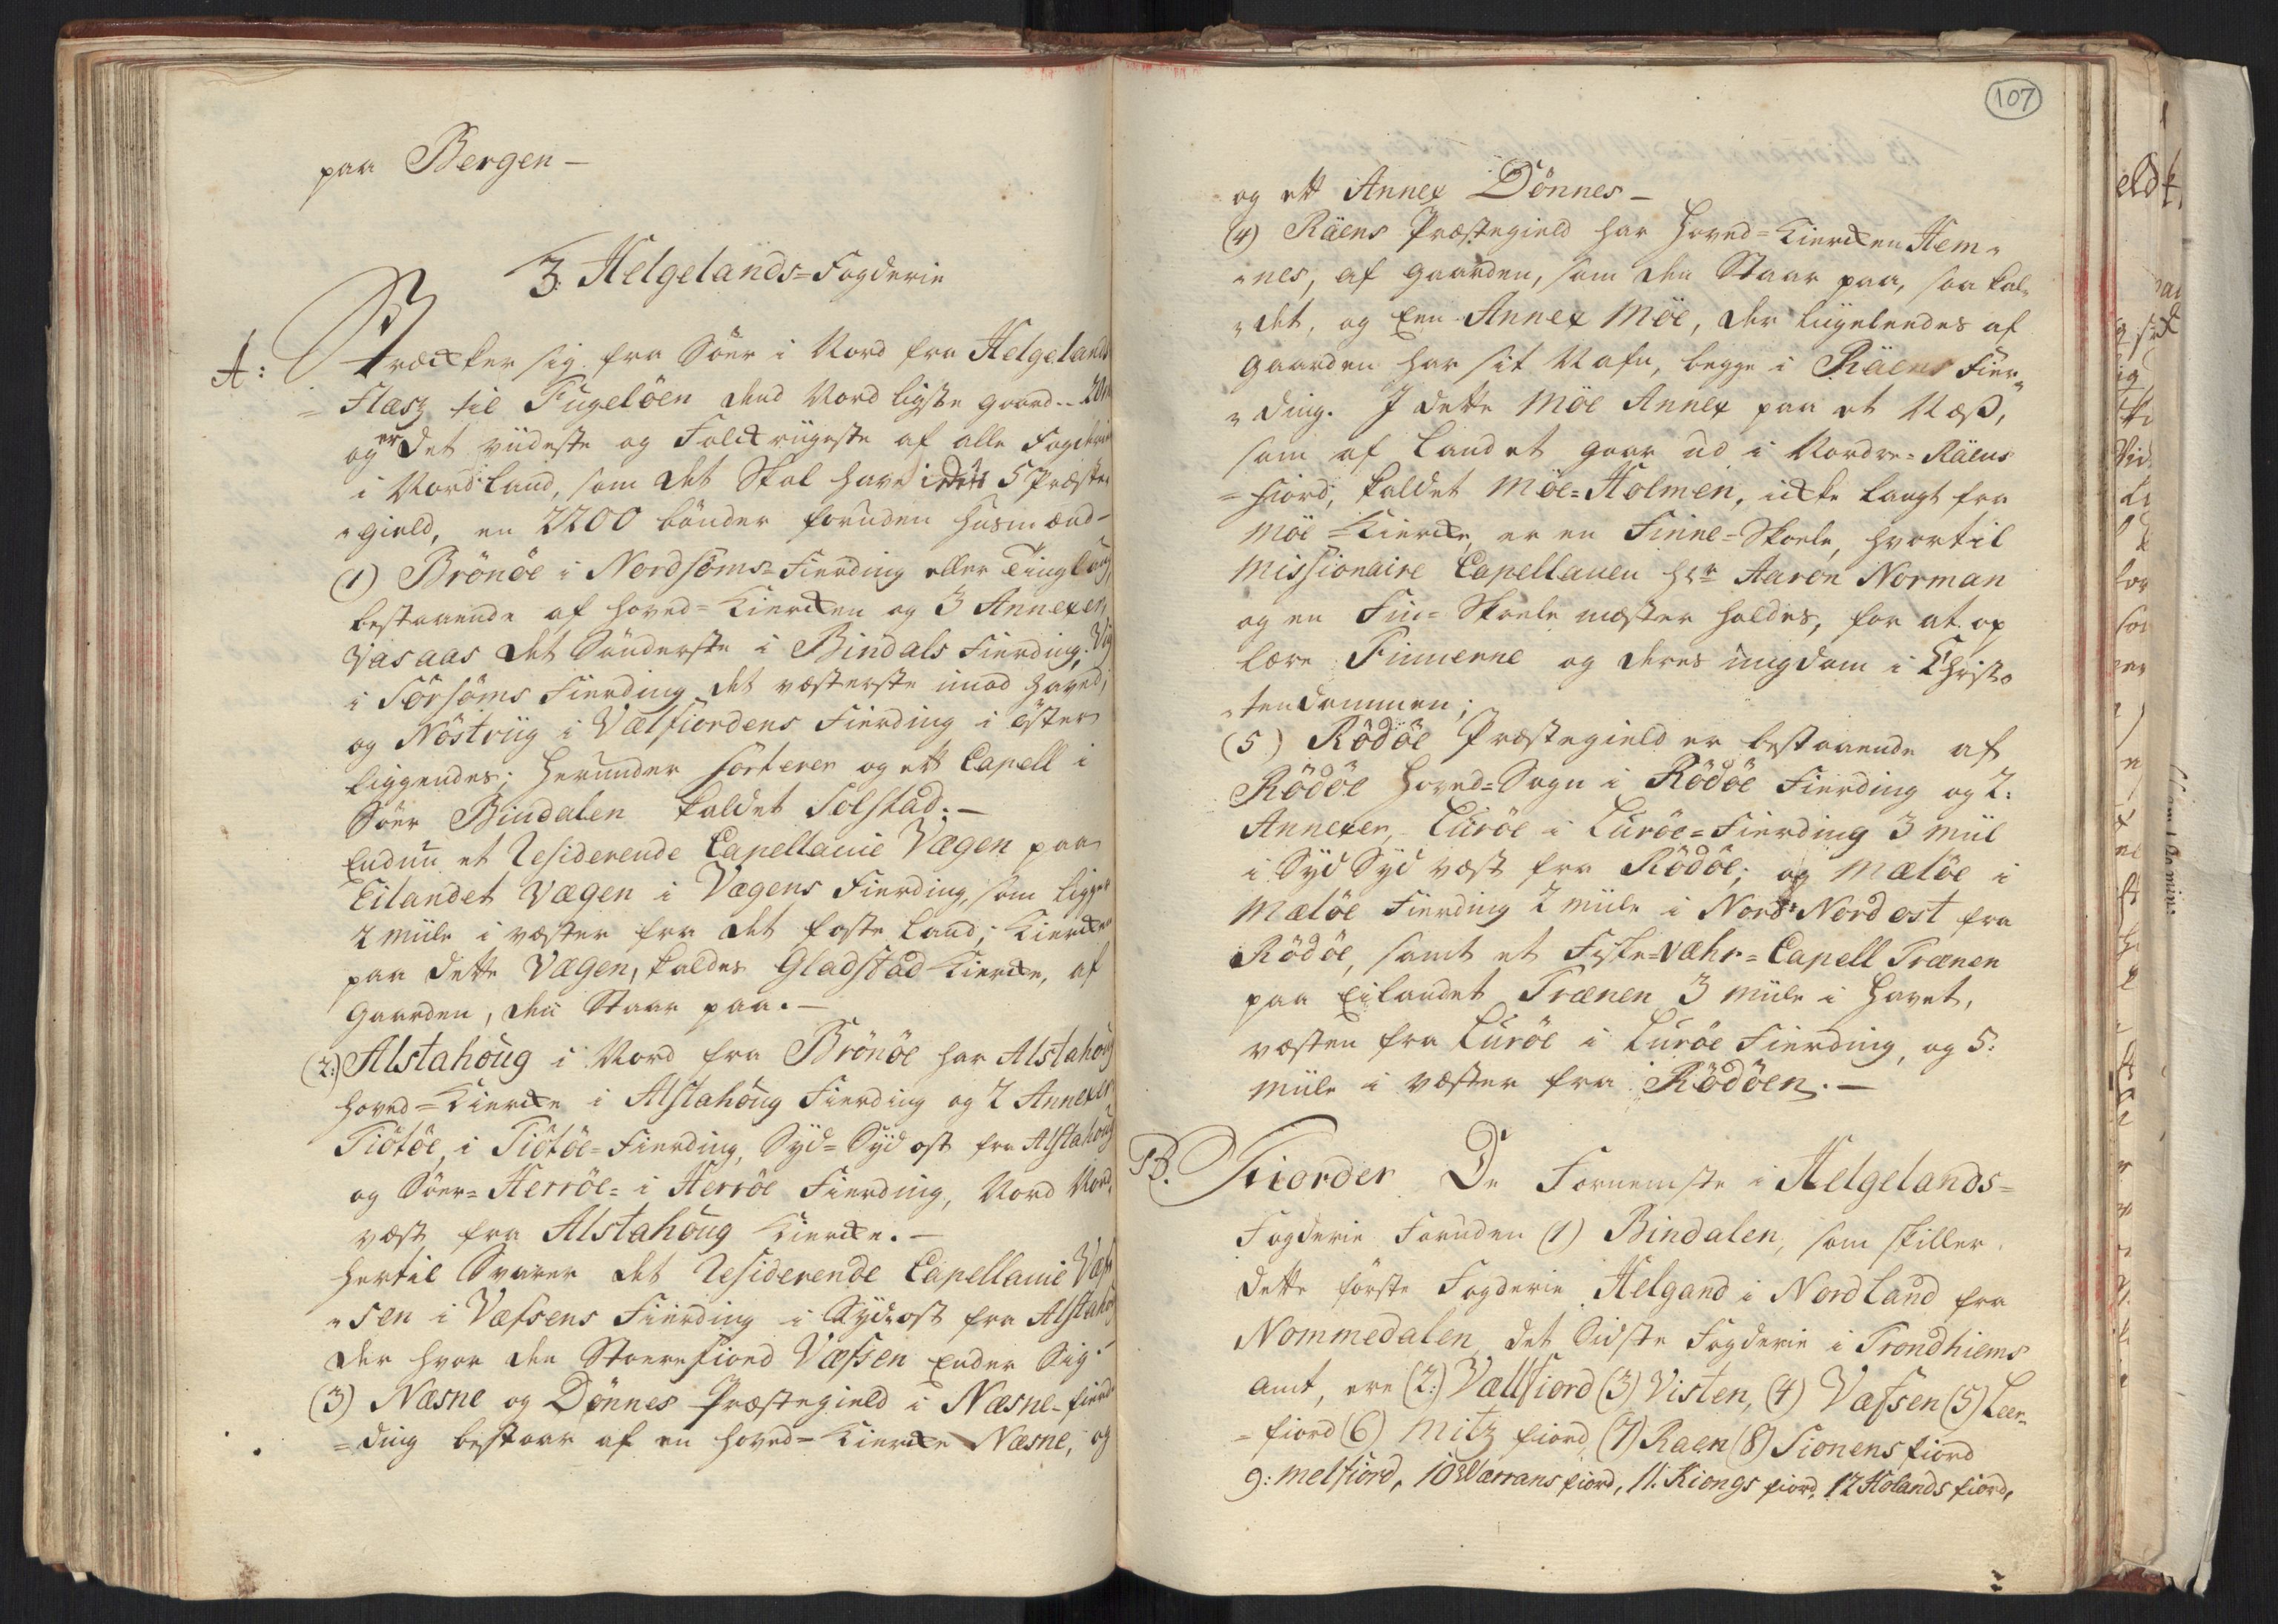 paa Bergen —
3. Helgelands=Fogderie
A: Stræcker sig fra Söer i Nord fra Helgelands
=Flasz til Fugelöen dend Nordligste gaard
og er det viideste og Folckriigeste af alle Fogderier
i Nordland, som det Skal have i dets 5 Præste
„gield, en 2200 bönder foruden huusmænd—
(1) Brönöe i Nordsöms=Fierding eller Tinglaug,
bestaaende af hoved=Kiercken og 3 Annexer,
Vasaas det Sönderste i Bindals Fierding, Vig
i Sörsöms Fierding det væsterste imod Haved,
og Nöstviig i Vælfiordens Fierding i Öster
liggendes; herunder sorterer og ett Capell i
Söer Bindalen kaldet Solstad. —
Endnu et Residerende Capellanie Vægen paa
Eilandet Vægen i Vægens Fierding, som ligger
2 miile i væster fra det faste Land; Kiercken
paa dette Vægen, kaldes Gladstad Kiercke, af
Gaarden, den Staar paa. —
(2:) Alstahoug i Nord fra Brönöe har Alstahoug
hoved=Kiercke i Alstahoug Fierding og 2 Annexer
Tiötöe, i Tiötöe=Fierding, Syd=Syd ost fra Alstahoug
og Söer=Herröe= i Herröe Fierding, Nord Nord
væst fra Alstahoug Kiercke. —
hertil Svarer det Residerende Capellanie Væf
„sen i Væfsens Fierding i Sydost fra Alstahoug
der hvor den Stoere fiord Væfsen Ender Sig.
(3) Næsne og Dönnes Præstegield i Næsne=fier
=ding bestaar af en hoved=Kiercke Næsne, og
107
og ett Annex Dönnes —
(4) Räens Præstegield har Hoved=Kiercken Hem„
„nes, af gaarden, som den Staar paa, saa kal„
„det, og Een Annex Möe, der liigeleedes af
gaarden har sit Nafn, begge i Räens Fier„
„ding. I dette Möe Annex paa et Næs,
som af Landet gaar ud i Nordre=Räens
=fiord, kaldet Möe=Holmen, icke langt fra
Möe=Kiercke, er en Finne=Skoele, hvortil
Missionaire Capellanen Hr. Aaron Norman
og en Fin=Skoele mæster holdes, for at op
lære Finnerne og deres ungdom i Christ„
„tendommen;
(5) Rödöe Præstegield er bestaaende af
Rödöe Hoved=Sogn i Rödöe Fierding og 2:
Annexer, Luröe i Luröe=Fierding 3 miil
i Syd Syd væst fra Rödöe; og Mælöe i
Mælöe Fierding 2 miile i Nord=Nord ost fra
Rödöe, samt et Fiske=Væhr=Capell Trænen
paa Eilandet Trænen 3 miile i Havet,
væsten fra Luröe i Luröe Fierding, og 5:
miile i væster fra Rödöen. —
B. Fiorder De Fornemste i Helgelands=
Fogderie Foruden (1) Bindalen, som skiller
dette förste Fogderie Helgand i Nordland fra
Nommedalen det Sidste Fogderie i Trondhiems
amt, ere (2:) Vællfiord (3) Visten, (4) Væfsen (5) Leer„
=fiord (6) Mitz fiord (7) Raen (8) Sionens fiord
9: Melfiord, 10 Værrans fiord, 11. Kiongs fiord, 12 Holands fiord,